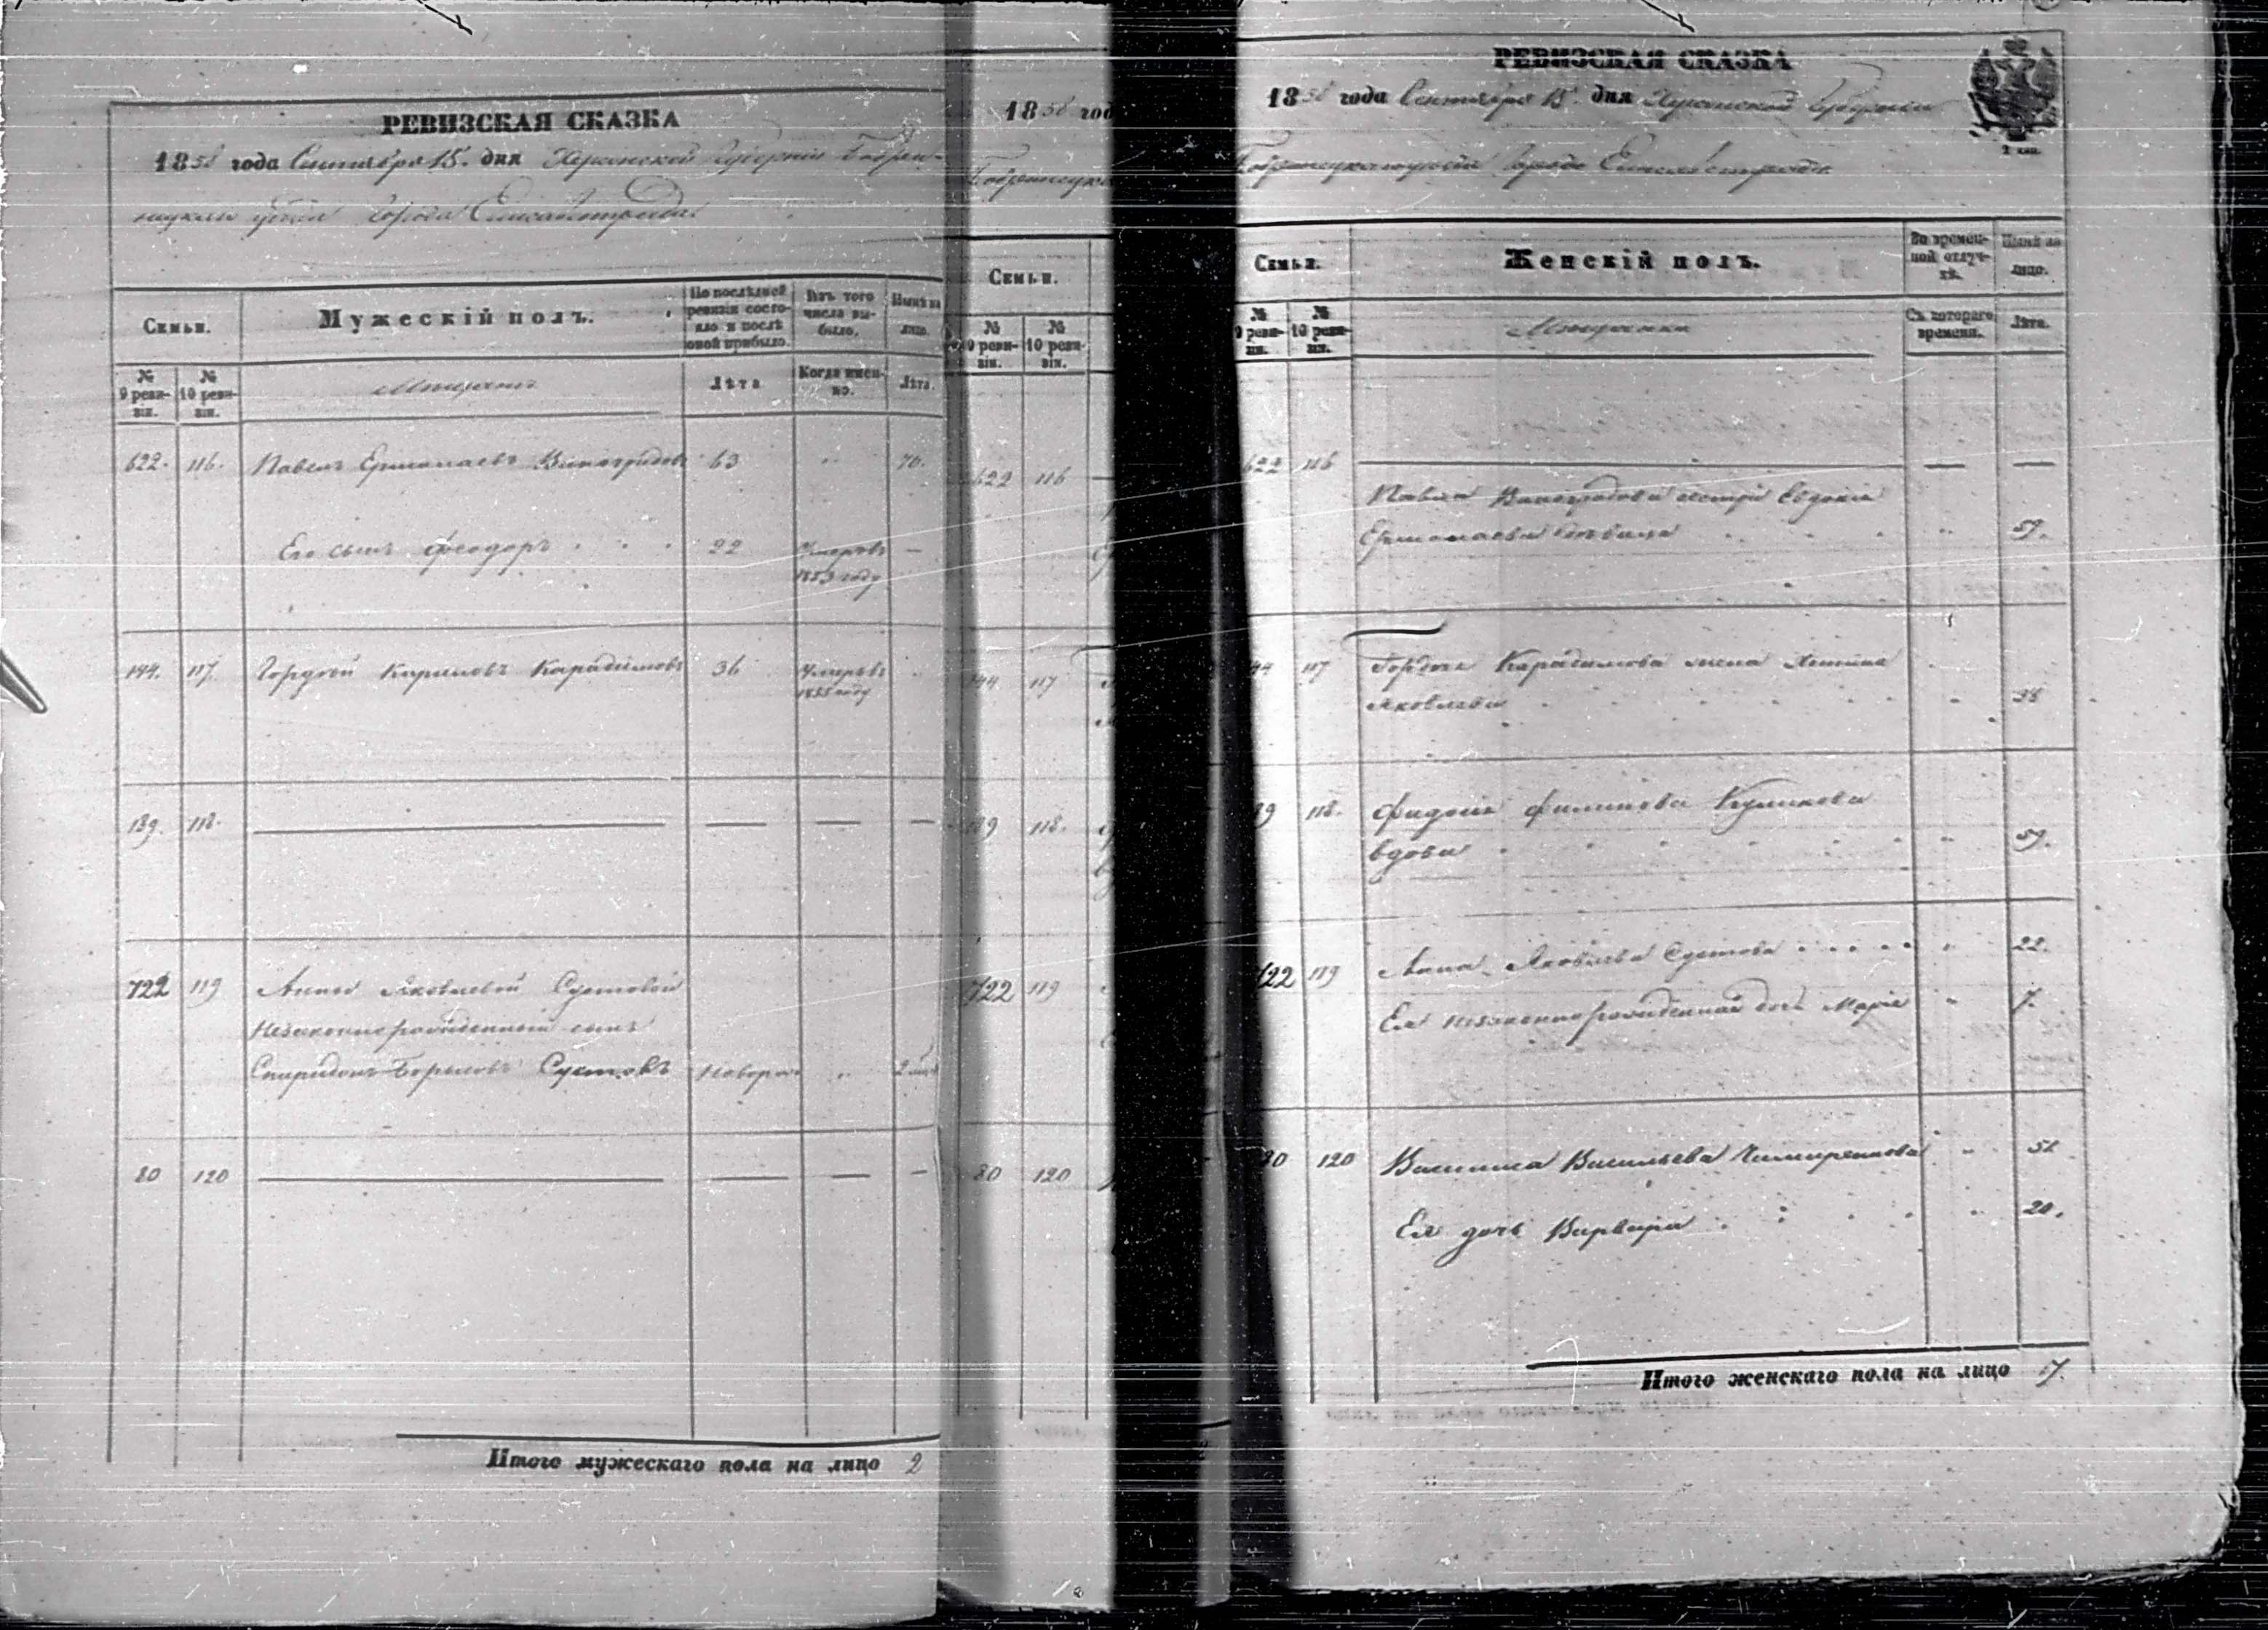 РЕВИЗСКАЯ СКАЗКА
1858 года Сентября 15. дня Херсонской Губерніи Бобри-
нецкаго уѣзда Города Елисаветграда
Семьи.
Мужескій полъ.
По послѣдней ревизіи состояло и послѣ оной прибыло.
Изъ того числа выбыло.
Нынѣ на лицо.
№ 9 ревизіи.
№ 10 ревизіи.
Мещане
Лѣта
Когда именно.
Лѣта.
622. 116. Павелъ Ермолаевъ Виноградовъ 63 70.
Его сынъ Феодоръ 22 Умеръ въ —
1853 году
144. 117. Гордей Кириловъ Карадимовъ 36 Умеръ въ
1855 году
189. 118. — — — —
722 119 Анны Яковлевой Сустовой
Незаконнорожденный сынъ
Спиридонъ Борисовъ Сустовъ Новорож 2
80 120 — — — —
Итого мужескаго пола на лицо 2
1858 год
Бобринецка
Семьи.
№ 9 ревизіи.
№ 10 ревизіи.
622 116
144 117
189 118.
722 119
80 120
РЕВИЗСКАЯ СКАЗКА
1858 года Сентября 15. дня Херсонской Губерніи
Бобринецкаго уѣзда города Елисаветграда
Семьи.
Женскій полъ.
Во временной отлучкѣ.
Нынѣ на лицо.
№ 9 ревизіи.
№ 10 ревизіи.
Мещанки
Съ котораго времени.
Лѣта.
622 116 — — —
Павла Виноградова сестра Евдокія
Ермолаева 59.
44 117 Гордея Карадимова жена
Яковлева 38
89 118. Филипова Куликова
вдова 59.
722 119 Анна Яковлева Сустова 22.
Ея незаконнорожденная дочь Марія 7.
80 120 Василиса Васильева
Ея дочь Варвара 20.
Итого женскаго пола на лицо 7.